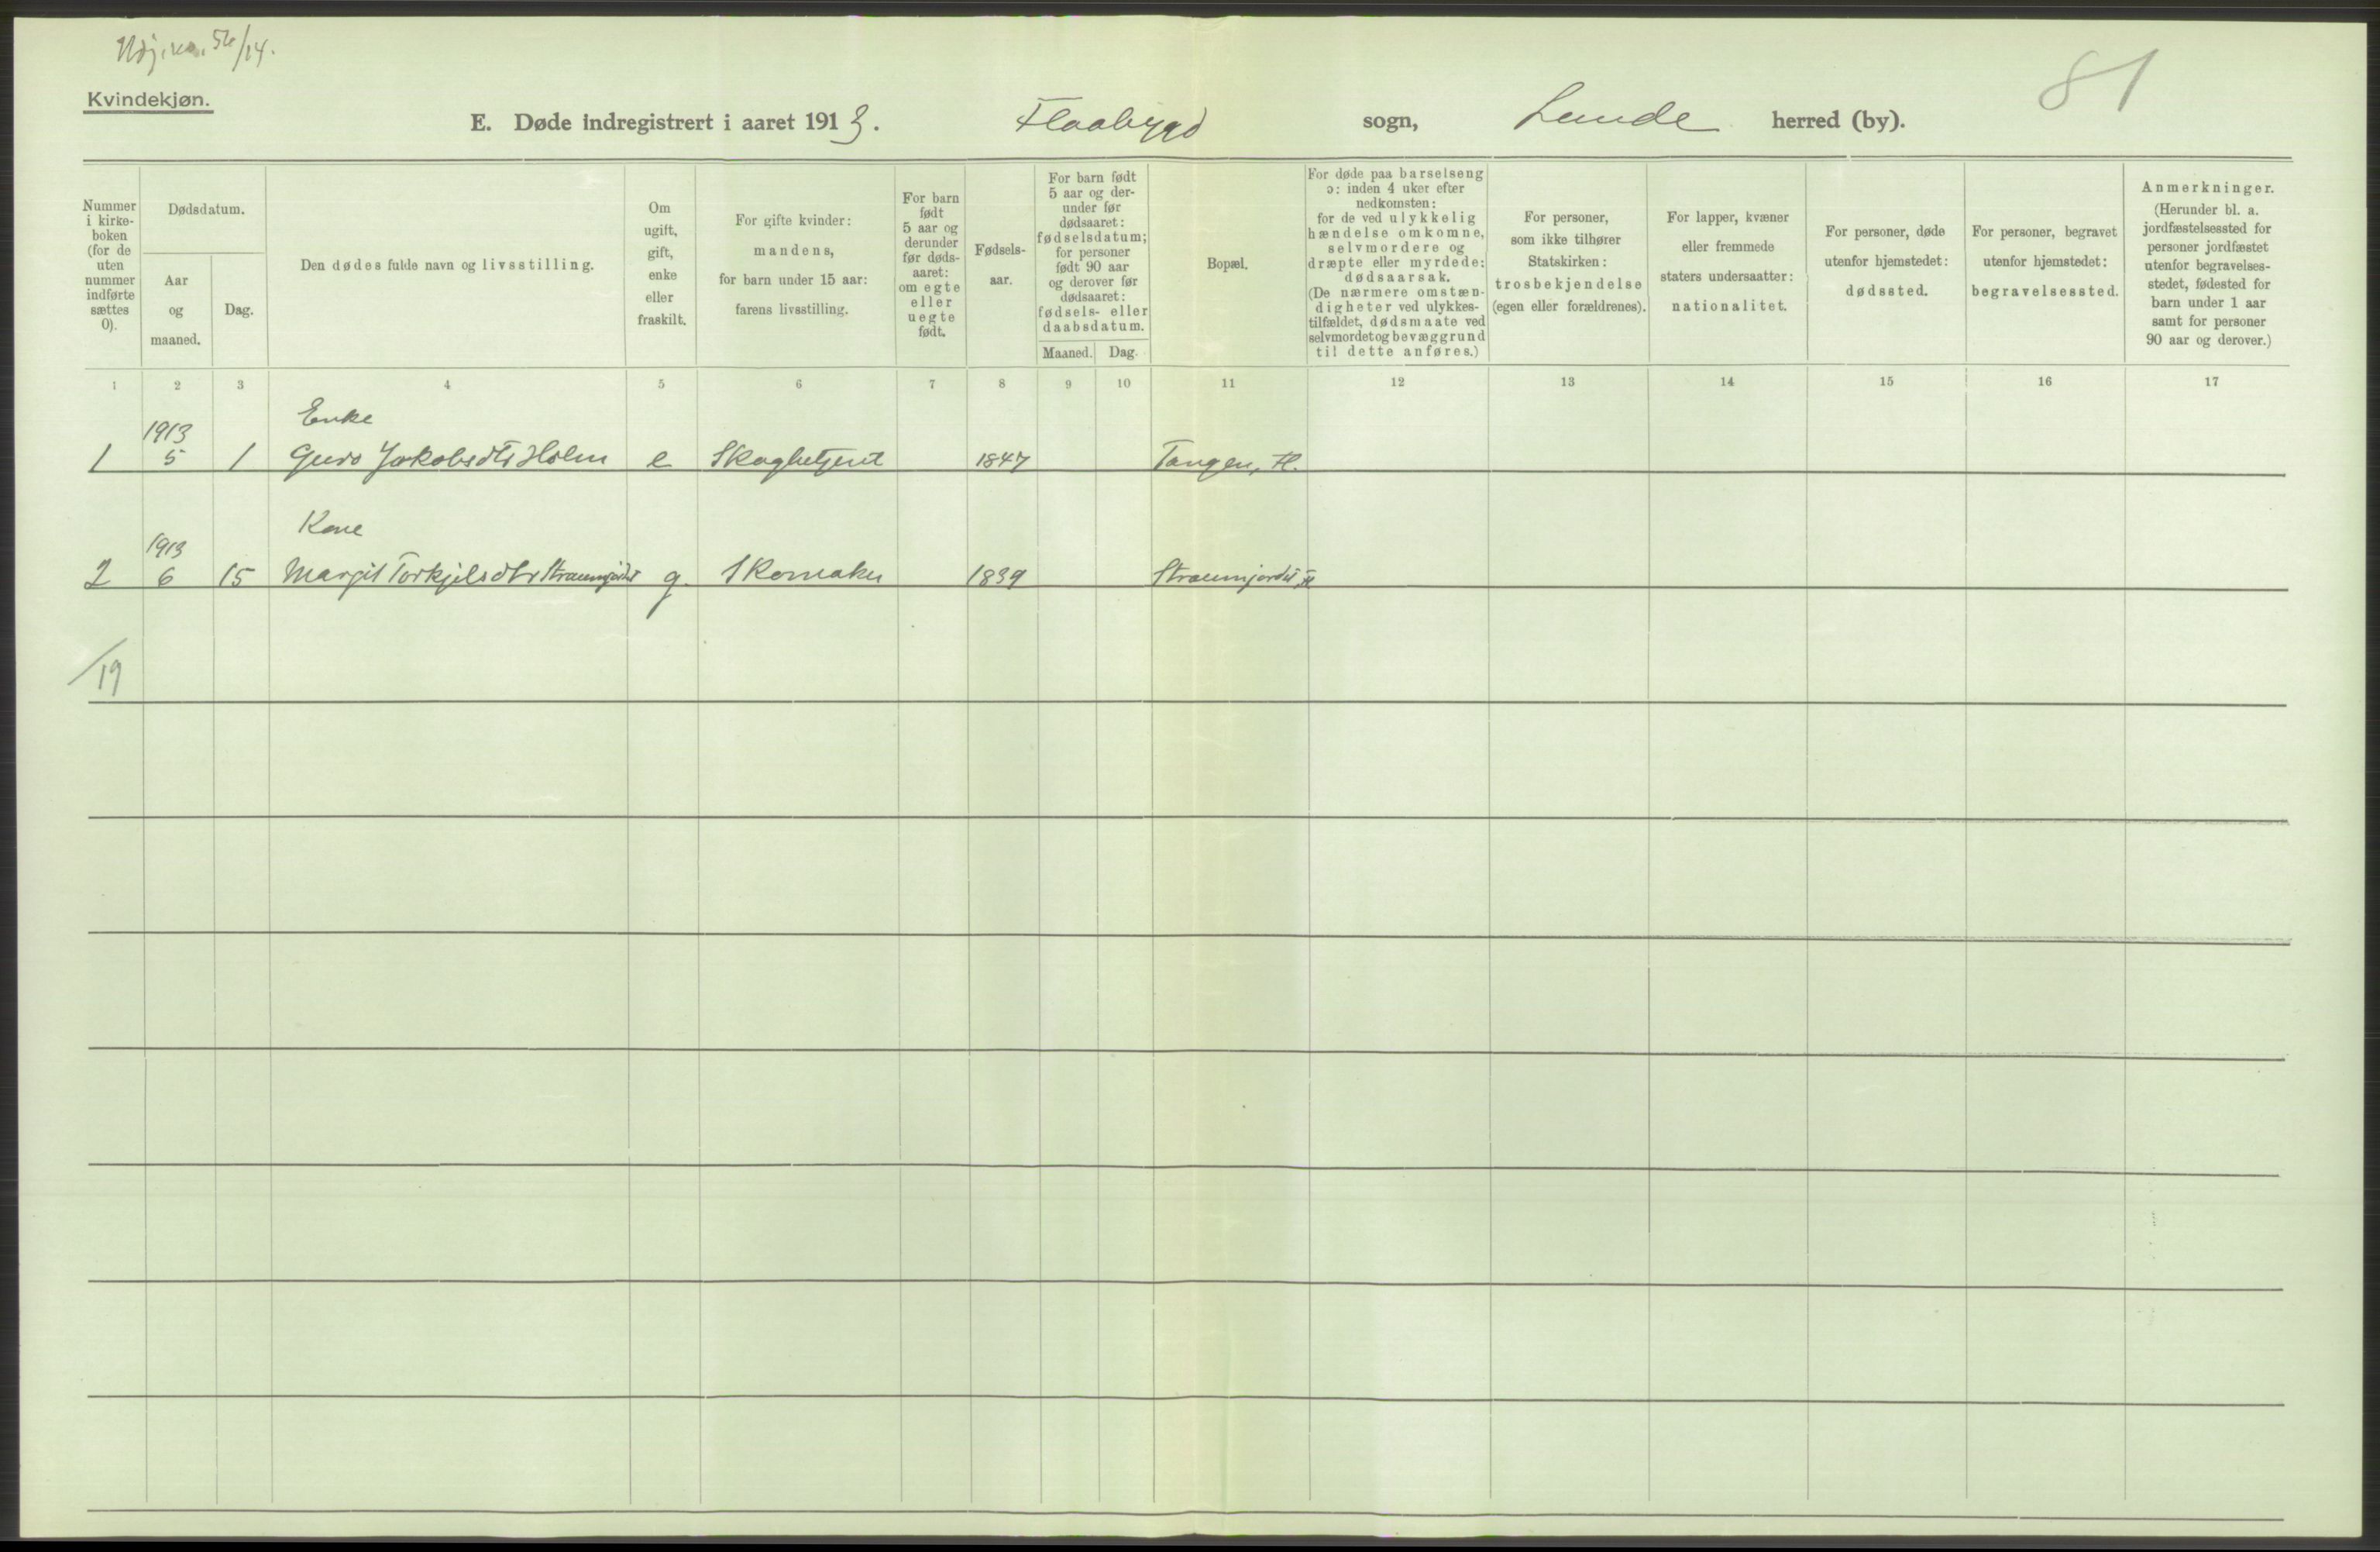 56/14.
Kvindekjøn.
81
E. Døde indregistrert i aaret 1913. Flaabygd sogn, Lunde herred (by).
Nummer i kirke-boken (for de uten nummer indførte sættes 0).
Dødsdatum.
Aar og maaned.
Dag.
Den dødes fulde navn og livsstilling.
Om ugift, gift, enke eller fraskilt.
For gifte kvinder: mandens, for barn under 15 aar: farens livsstilling.
For barn født 5 aar og derunder før døds-aaret: om egte eller uegte født.
Fødsels-aar.
For barn født 5 aar og der-under før dødsaaret: fødselsdatum; for personer født 90 aar og derover før dødsaaret: fødsels- eller daabsdatum.
Maaned. Dag.
Bopæl.
For døde paa barselseng ɔ: inden 4 uker efter nedkomsten: for de ved ulykkelig hændelse omkomne, selvmordere og dræpte eller myrdede: dødsaarsak. (De nærmere omstæn-digheter ved ulykkes-tilfældet, dødsmaate ved selvmordet og bevæggrund til dette anføres.)
For personer, som ikke tilhører Statskirken: trosbekjendelse (egen eller forældrenes).
For lapper, kvæner eller fremmede staters undersaatter: nationalitet.
For personer, døde utenfor hjemstedet: dødssted.
For personer, begravet utenfor hjemstedet: begravelsessted.
Anmerkninger. (Herunder bl. a. jordfæstelsessted for personer jordfæstet utenfor begravelses-stedet, fødested for barn under 1 aar samt for personer 90 aar og derover.)
1 2 3 4 5 6 7 8 9 10 11 12 13 14 15 16 17
1913 Enke
1 5 1 Guro Jakobsdtr Holm e Skogbetjent 1847 Tangen, Fl.
1913 Kone
2 6 15 Margit Torkjelsdtr Straumjordet g. Skomaker 1839 Straumjordet, Fl
/19